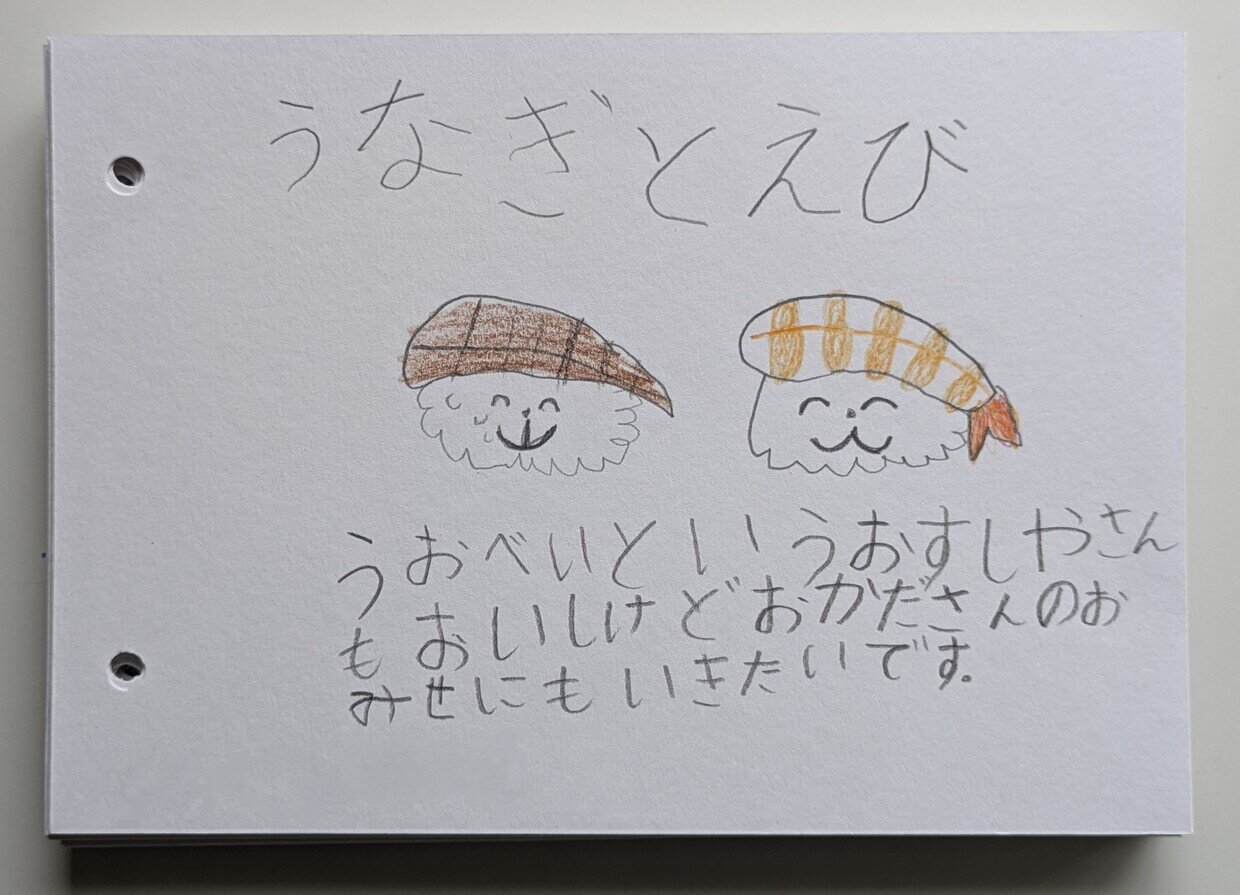 うなぎとえび
うおべいというおすしやさん
もおいしいけどおかださんのお
みせにもいきたいです。